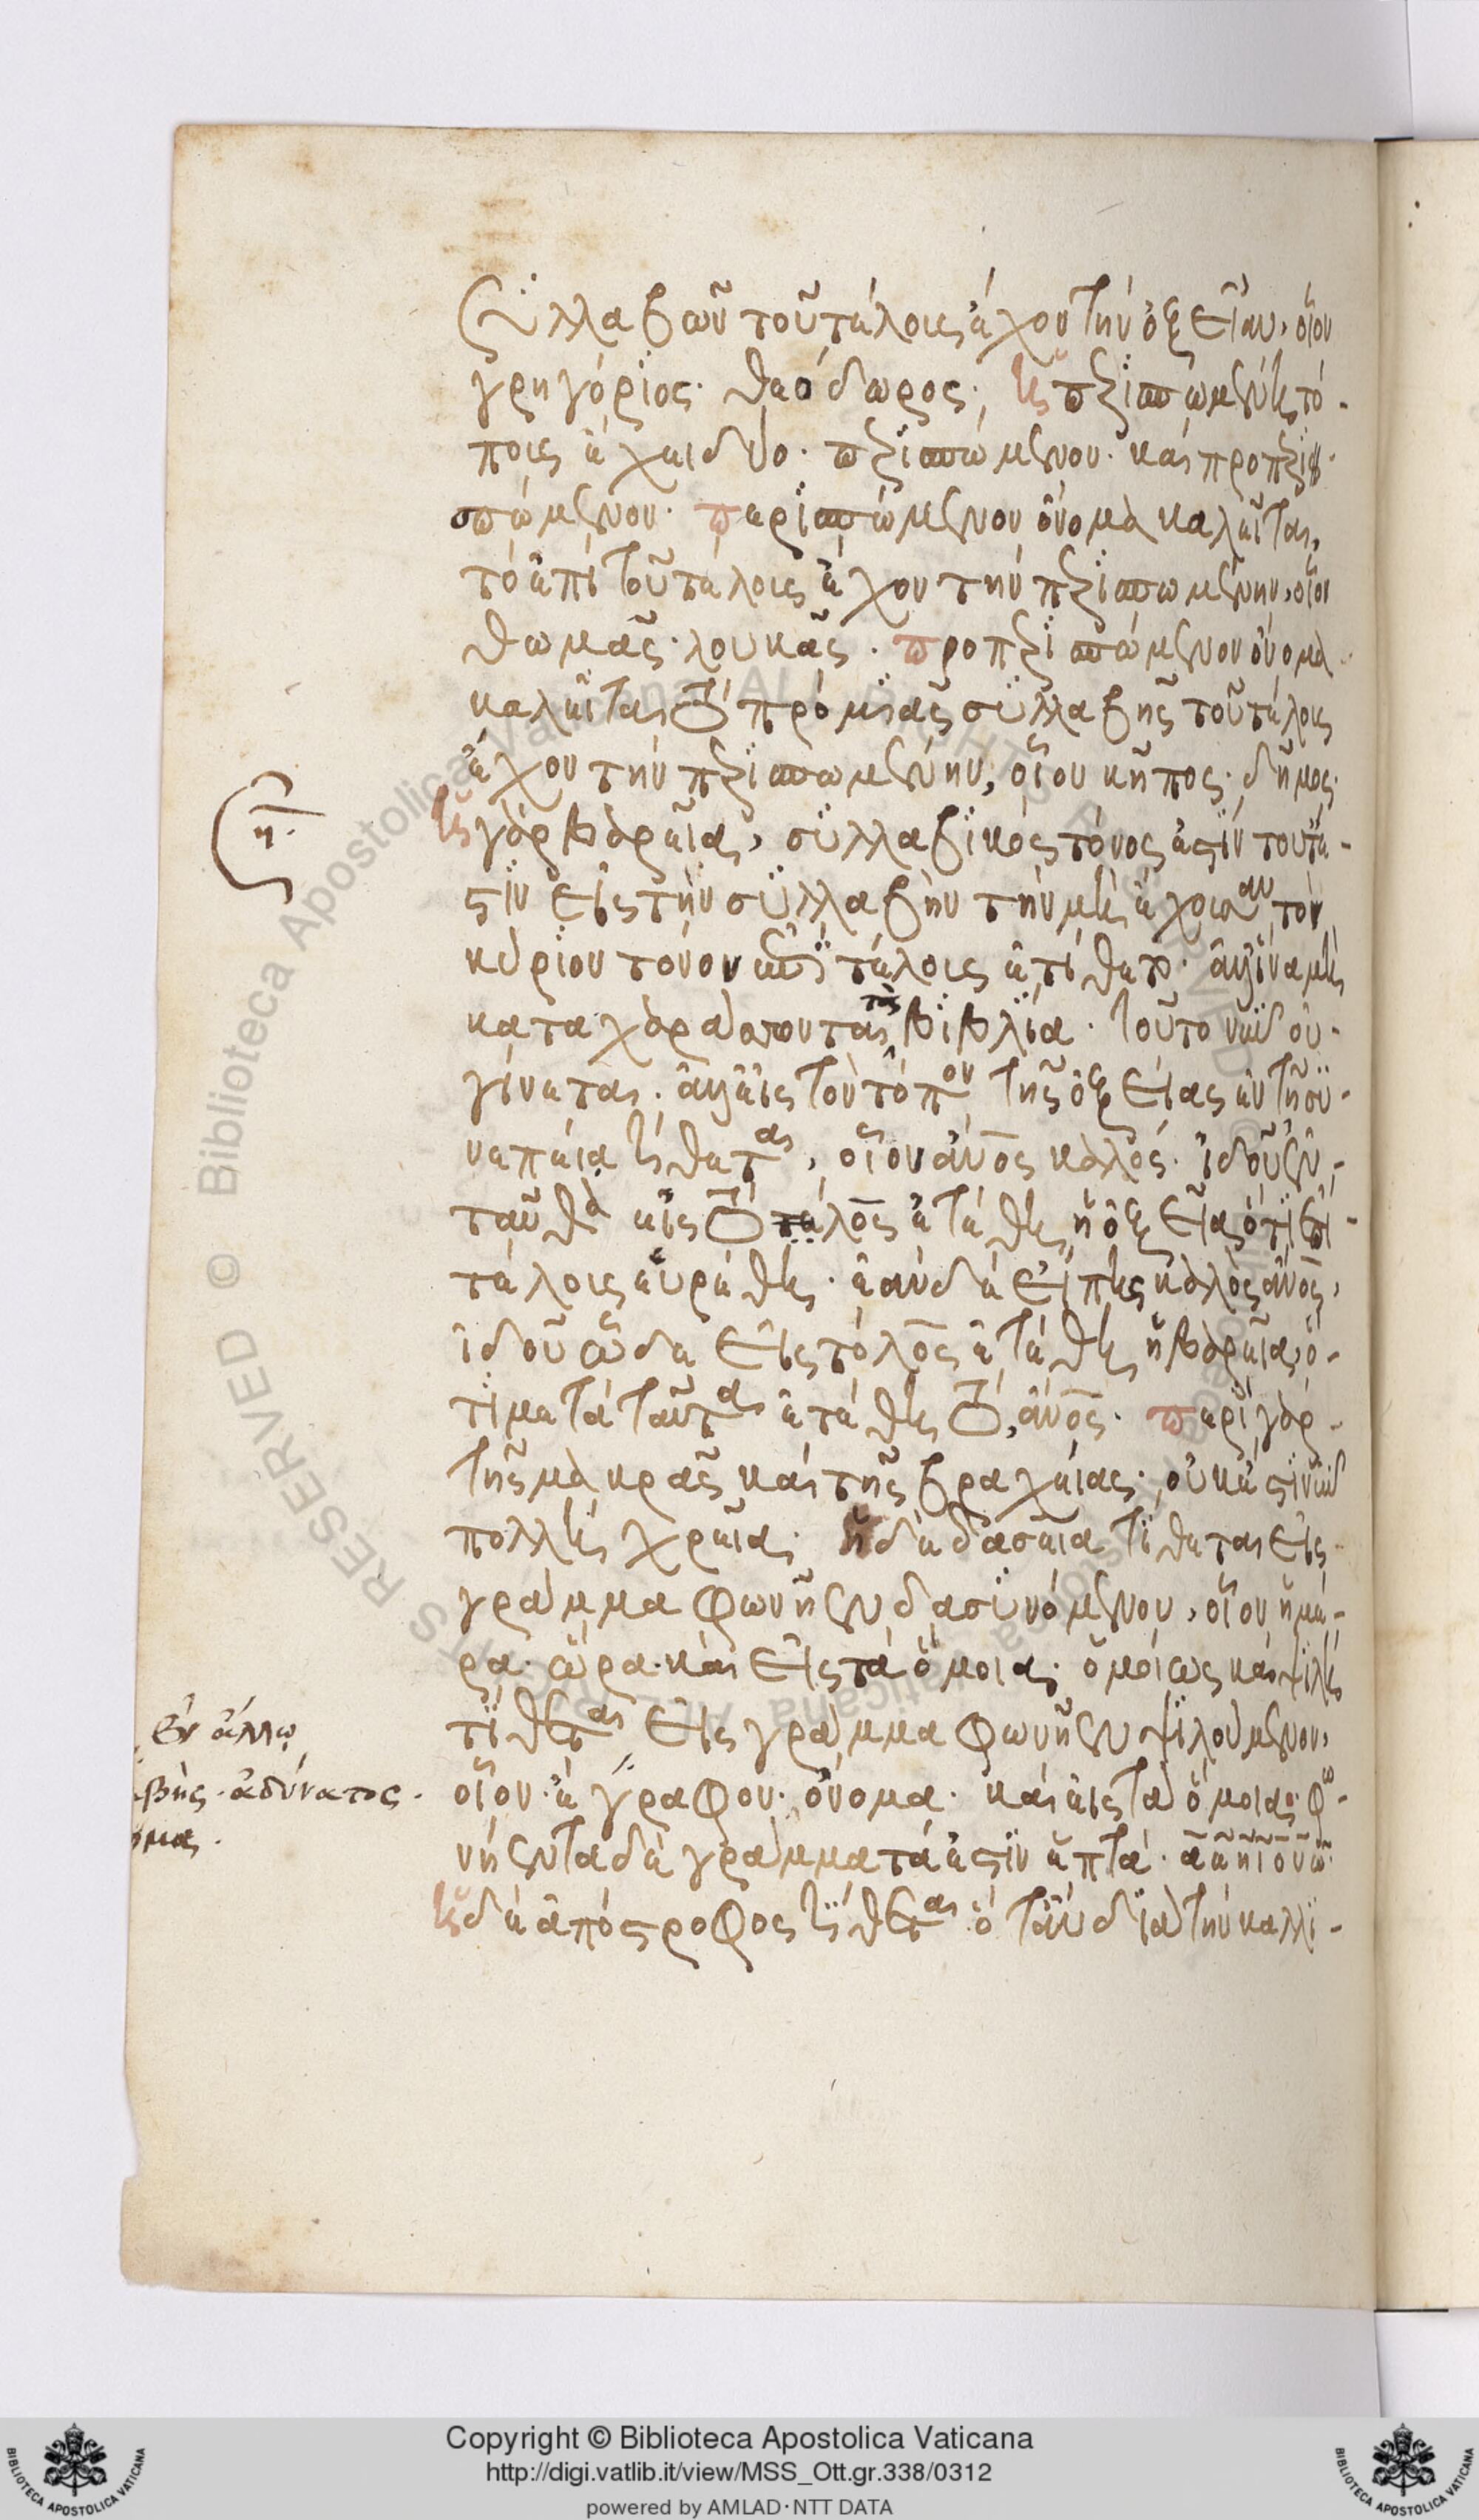 συλλαβῶν τοῦ τέλους ἔχον τὴν ὀξεῖαν, οἷον
γρηγόριος· θεόδωρος· ἡ περισπωμένη τό-
πους ἔχει δύο· περισπώμενον· καὶ προπερι-
σπώμενον· περισπώμενον ὄνομα καλεῖται,
τὸ ἐπὶ τοῦ τέλους ἔχον τὴν περισπωμένην, οἷον
θωμᾶς· λουκᾶς· προπερισπώμενον ὄνομα
καλεῖται τὸ πρὸ μιᾶς συλλαβῆς τοῦ τέλους
ἔχον τὴν περισπωμένην, οἷον κῆπος· δῆμος·
η
ἡ γὰρ βαρεῖα, συλλαβικὸς τόνος ἐστὶν τουτέ-
στιν εἰς τὴν συλλαβὴν τὴν μὴ ἔχουσαν τὸν
κύριον τόνον ἐπὶ τέλους ἐτίθετο· ἀλλ' ἵνα μὴ
καταχαράσσονται τὰ βιβλία· τοῦτο νῦν οὐ
γίνεται· ἀλλ' εἰς τὸν τόπον τῆς ὀξείας ἐν τῇ συ-
νεπείᾳ τίθεται, οἷον ἄνος καλός· ἰδοῦ ἐν-
ταῦθα εἰς τὸ τέλος ἐτέθη ἡ ὀξεῖα ὅτι ἐπὶ
τέλους εὑρέθη· ἐὰν δὲ εἴπῃς καλὸς ἄνος,
ἰδοῦ ὧδε εἰς τὸ λος ἐτέθη ἡ βαρεῖα, ὅ-
τι μετὰ ταῦτα ἐτέθη τὸ, ἄνος· περὶ γὰρ
τῆς μακρᾶς καὶ τῆς βραχείας· οὐκ ἔστιν νῦν
πολλὴ χρεία· ἡ δὲ δασεῖα τίθεται εἰς
γράμμα φωνῆεν δασυνόμενον, οἷον ἡμέ-
ρα· ὥρα· καὶ εἰς τὰ ὅμοια· ὁμοίως καὶ ψιλὴ
τίθεται εἰς γράμμα φωνῆεν ψιλούμενον,
οἷον· ἔγραφον· ὄνομα· καὶ εἰς τὰ ὅμοια· φω-
νήεντα δὲ γράμματά ἐστιν ἑπτά· α ε η ι ο υ ω
ἡ δὲ ἀπόστροφος τίθεται ὅταν διὰ τὴν καλλι-
Ἐν ἄλλῳ
βὴς· ἀδύνατος·
Copyright © Biblioteca Apostolica Vaticana
http://digi.vatlib.it/view/MSS_Ott.gr.338/0312
powered by AMLAD·NTT DATA
BIBLIOTECA APOSTOLICA VATICANA
BIBLIOTECA APOSTOLICA VATICANA